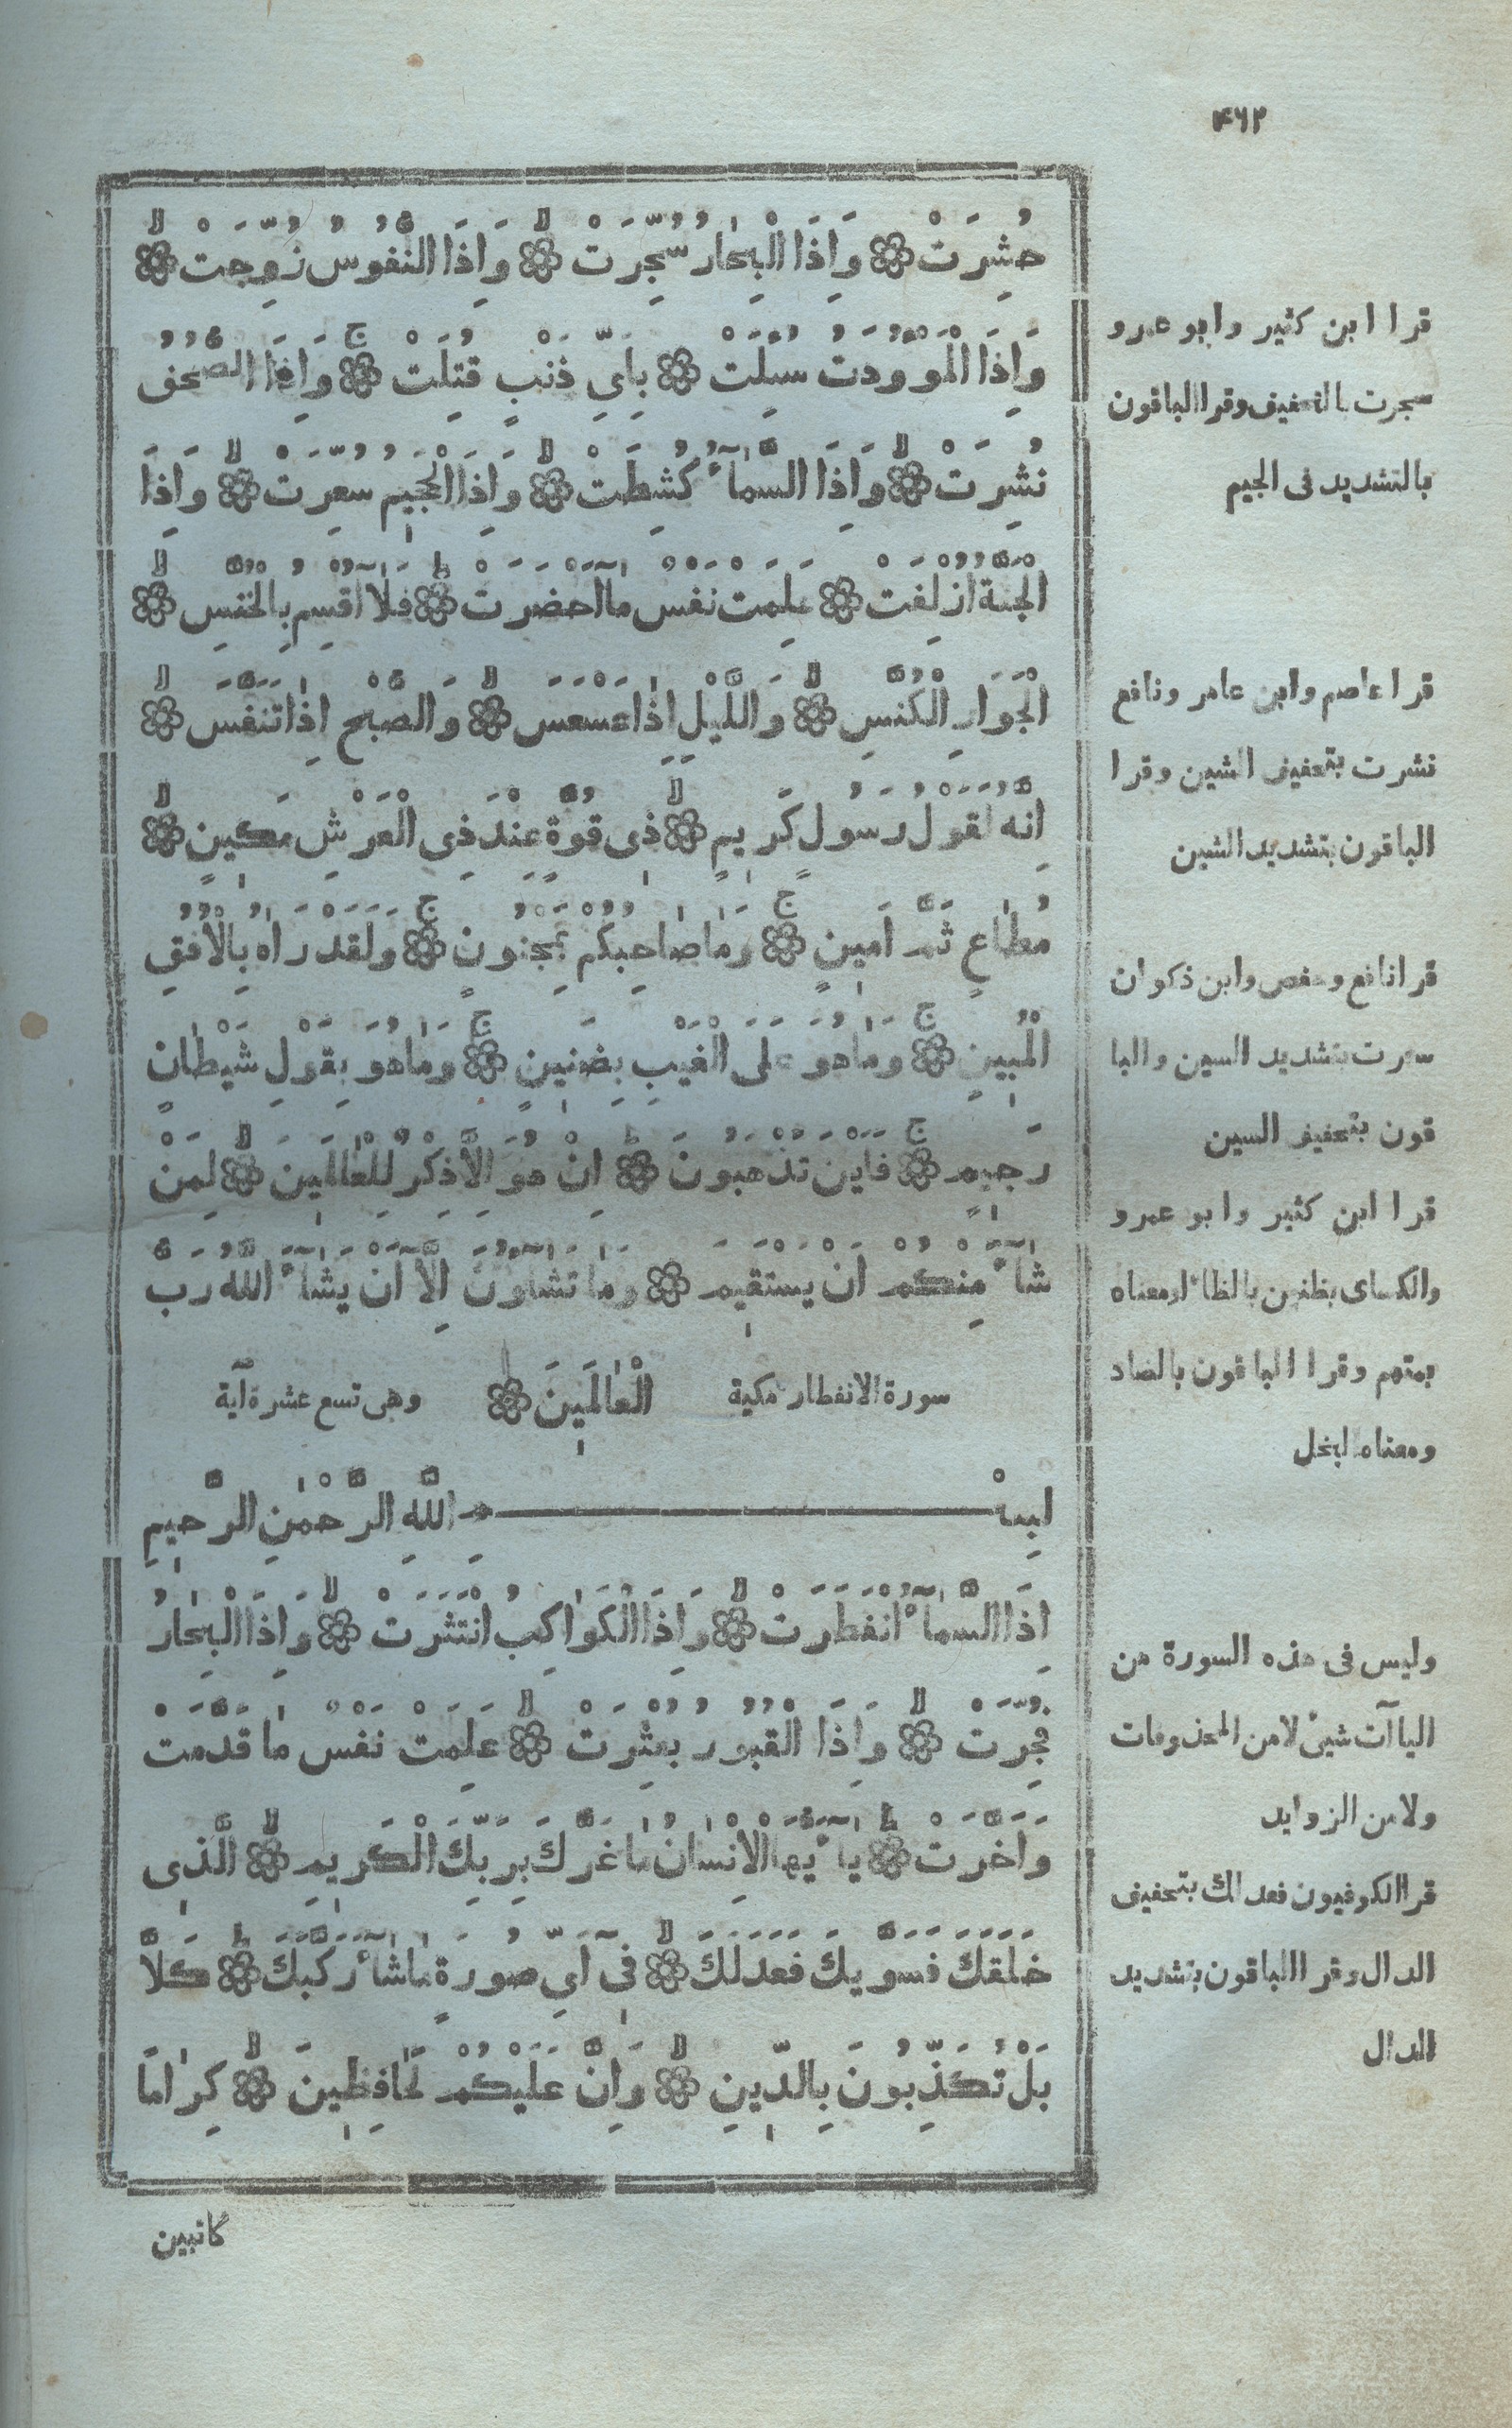 ۴۶۲
حُشِرَتْ ۞ وَاِذَا الْبِحٰارُ سُجِّرَتْ ۞ وَاِذَا النُّفُوسُ زُوِّجَتْ ۞
وَاِذَا الْمَوْؤُدَتُ سُئِلَتْ ۞ بِاَىِّ ذَنْبٍ قُتِلَتْ ۞ وَاِذَا الصُّحُفُ
نُشِرَتْ ۞ وَاِذَا السَّمٰآءُ كُشِطَتْ ۞ وَاِذَا الْجَحِيمُ سُعِّرَتْ ۞ وَاِذَا
الْجَنَّةُ اُزْلِفَتْ ۞ عَلِمَتْ نَفْسٌ مٰا اَحْضَرَتْ ۞ فَلٰا اُقْسِمُ بِالْخُنَّسِ ۞
الْجَوَارِ الْكُنَّسِ ۞ وَاللَّيْلِ اِذٰا عَسْعَسَ ۞ وَالصُّبْحِ اِذٰا تَنَفَّسَ ۞
اِنَّهُ لَقَوْلُ رَسُولٍ كَرِيمٍ ۞ ذِى قُوَّةٍ عِنْدَ ذِى الْعَرْشِ مَكِينٍ ۞
مُطٰاعٍ ثَمَّ اَمِينٍ ۞ وَمٰا صٰاحِبُكُمْ بِمَجْنُونٍ ۞ وَلَقَدْ رَاٰهُ بِالْاُفُقِ
الْمُبِينِ ۞ وَمٰا هُوَ عَلَى الْغَيْبِ بِضَنِينٍ ۞ وَمٰا هُوَ بِقَوْلِ شَيْطٰانٍ
رَجِيمٍ ۞ فَاَيْنَ تَذْهَبُونَ ۞ اِنْ هُوَ اِلَّا ذِكْرٌ لِلْعٰالَمِينَ ۞ لِمَنْ
شٰآءَ مِنْكُمْ اَنْ يَسْتَقِيمَ ۞ وَمٰا تَشٰآؤُنَ اِلَّآ اَنْ يَشٰآءَ اللّٰهُ رَبُّ
سورة الانفطار مكية الْعٰالَمِينَ ۞ وهى تسع عشرة آية
بِسْمِ اللّٰهِ الرَّحْمٰنِ الرَّحِيمِ
اِذَا السَّمٰآءُ انْفَطَرَتْ ۞ وَاِذَا الْكَوٰاكِبُ انْتَثَرَتْ ۞ وَاِذَا الْبِحٰارُ
فُجِّرَتْ ۞ وَاِذَا الْقُبُورُ بُعْثِرَتْ ۞ عَلِمَتْ نَفْسٌ مٰا قَدَّمَتْ
وَاَخَّرَتْ ۞ يٰآءَيُّهَا الْاِنْسٰانُ مٰا غَرَّكَ بِرَبِّكَ الْكَرِيمِ ۞ الَّذِى
خَلَقَكَ فَسَوّٰيكَ فَعَدَلَكَ ۞ فِىٓ اَىِّ صُورَةٍ مٰا شٰآءَ رَكَّبَكَ ۞ كَلَّا
بَلْ تُكَذِّبُونَ بِالدِّينِ ۞ وَاِنَّ عَلَيْكُمْ لَحٰافِظِينَ ۞ كِرٰامًا
كاتبين
قرا ابن كثير وابو عمرو
سجرت بالتخفيف وقرا الباقون
بالتشديد فى الجيم
قرا عاصم وابن عامر ونافع
نشرت بتخفيف الشين وقرا
الباقون بتشديد الشين
قرا نافع وحفص وابن ذكوان
سعرت بتشديد السين والبا
قون بتخفيف السين
قرا ابن كثير وابو عمرو
والكساى بظنين بالظاء ومعناه
بمتهم وقرا الباقون بالضاد
ومعناه لبخل
وليس فى هذه السورة من
الياآت شىء لا من المحذوفات
ولا من الزوايد
قرا الكوفيون فعدلك بتخفيف
الدال وقرا الباقون بتشديد
الدال